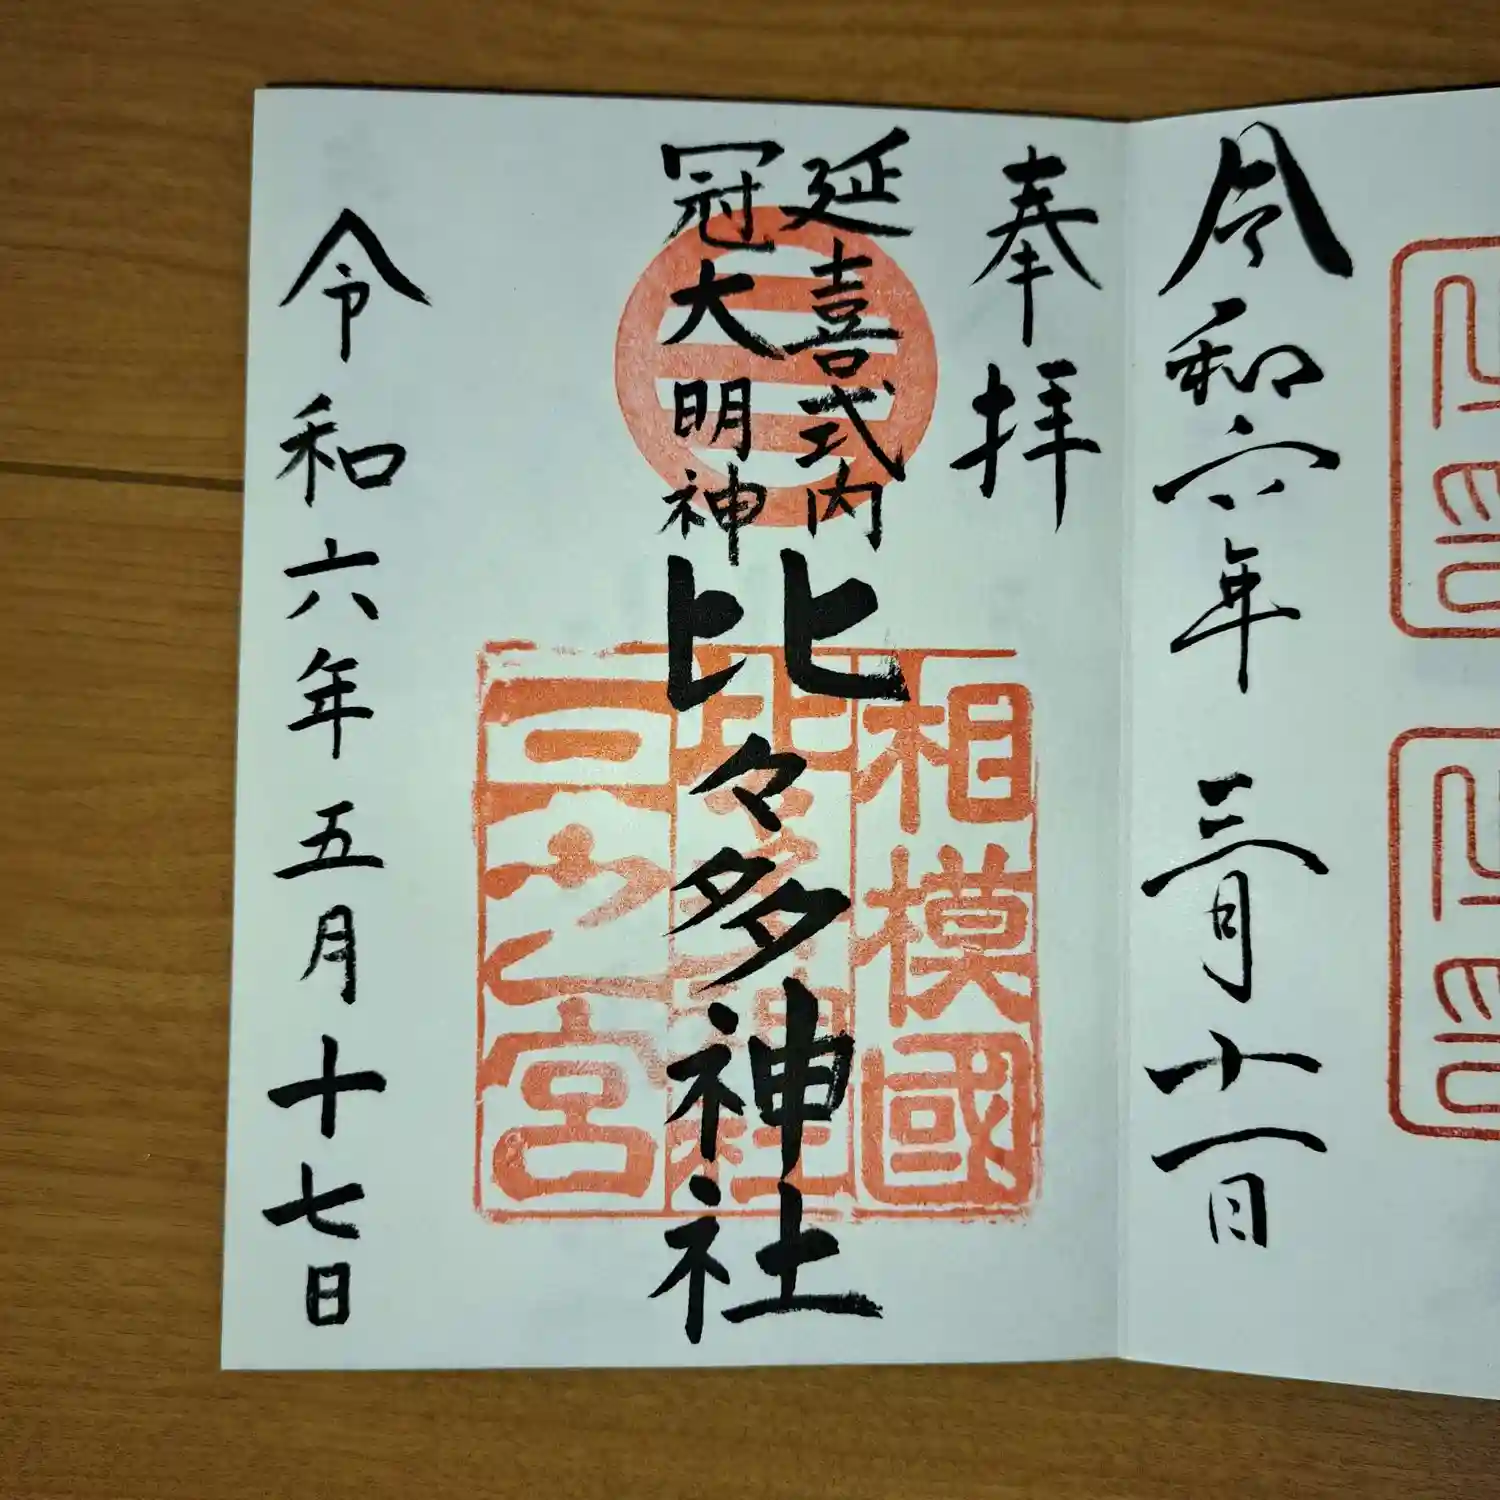 令和六年
三月十一日
奉拝
延喜式内
冠大明神
比々多神社
相模國
比々多神社
三之宮
令和六年五月十七日